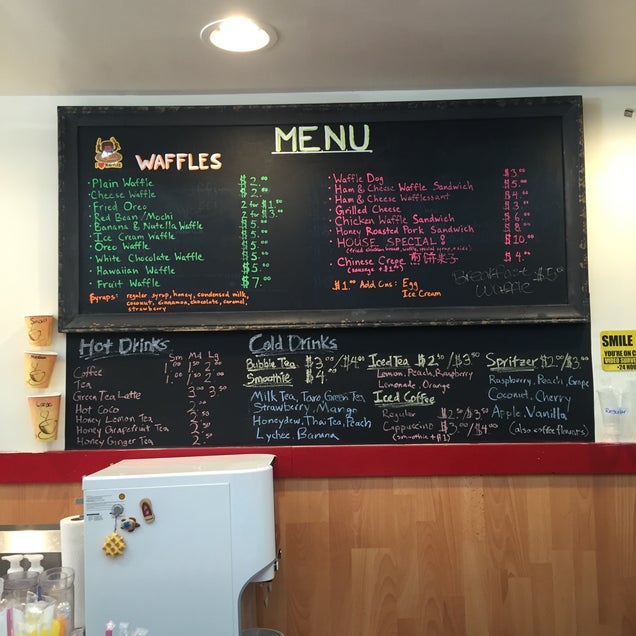 MENU
WAFFLES
Plain Waffle $2.00
Cheese Waffle $2.00
Fried Oreo 2 for $1.00
Red Bean/Mochi 2 for $3.00
Banana & Nutella Waffle $5.00
Ice Cream Waffle $5.00
Oreo Waffle $5.00
White Chocolate Waffle $5.00
Hawaiian Waffle $5.00
Fruit Waffle $7.00
Syrups: regular syrup, honey, condensed milk,
coconut, cinnamon, chocolate, caramel,
strawberry
Waffle Dog $3.00
Ham & Cheese Waffle Sandwich $5.00
Ham & Cheese Wafflessant $4.00
Grilled Cheese $3.00
Chicken Waffle Sandwich $6.00
Honey Roasted Pork Sandwich $8.00
HOUSE SPECIAL! $10.00
Chinese Crepe $4.00
(sausage +$1.00)
$1.00 Add Ons: Egg
Ice Cream
Breakfast $5.00
Waffle
Hot Drinks
Sm Md Lg
Coffee 1.00 1.50 2.00
Tea
Green Tea Latte
Hot Coco
Honey Lemon Tea
Honey Grapefruit Tea
Honey Ginger Tea
Cold Drinks
Bubble Tea $3.00/$4.00
Smoothie $4.00
Milk Tea, Taro, Green Tea,
Strawberry, Mango
Honeydew, Thai Tea, Peach
Lychee, Banana
Iced Tea $2.50/$3.50
Lemon, Peach, Raspberry
Lemonade, Orange
Iced Coffee
Regular $2.50/$3.50
Cappuccino $3.00/$4.00
(smoothie +$1)
Spritzer $2.00/$3.00
Raspberry, Peach, Grape
Coconut, Cherry
Apple, Vanilla
(also coffee flavors)
SMILE
YOU'RE ON C
VIDEO SURV
24 HOU
Regular